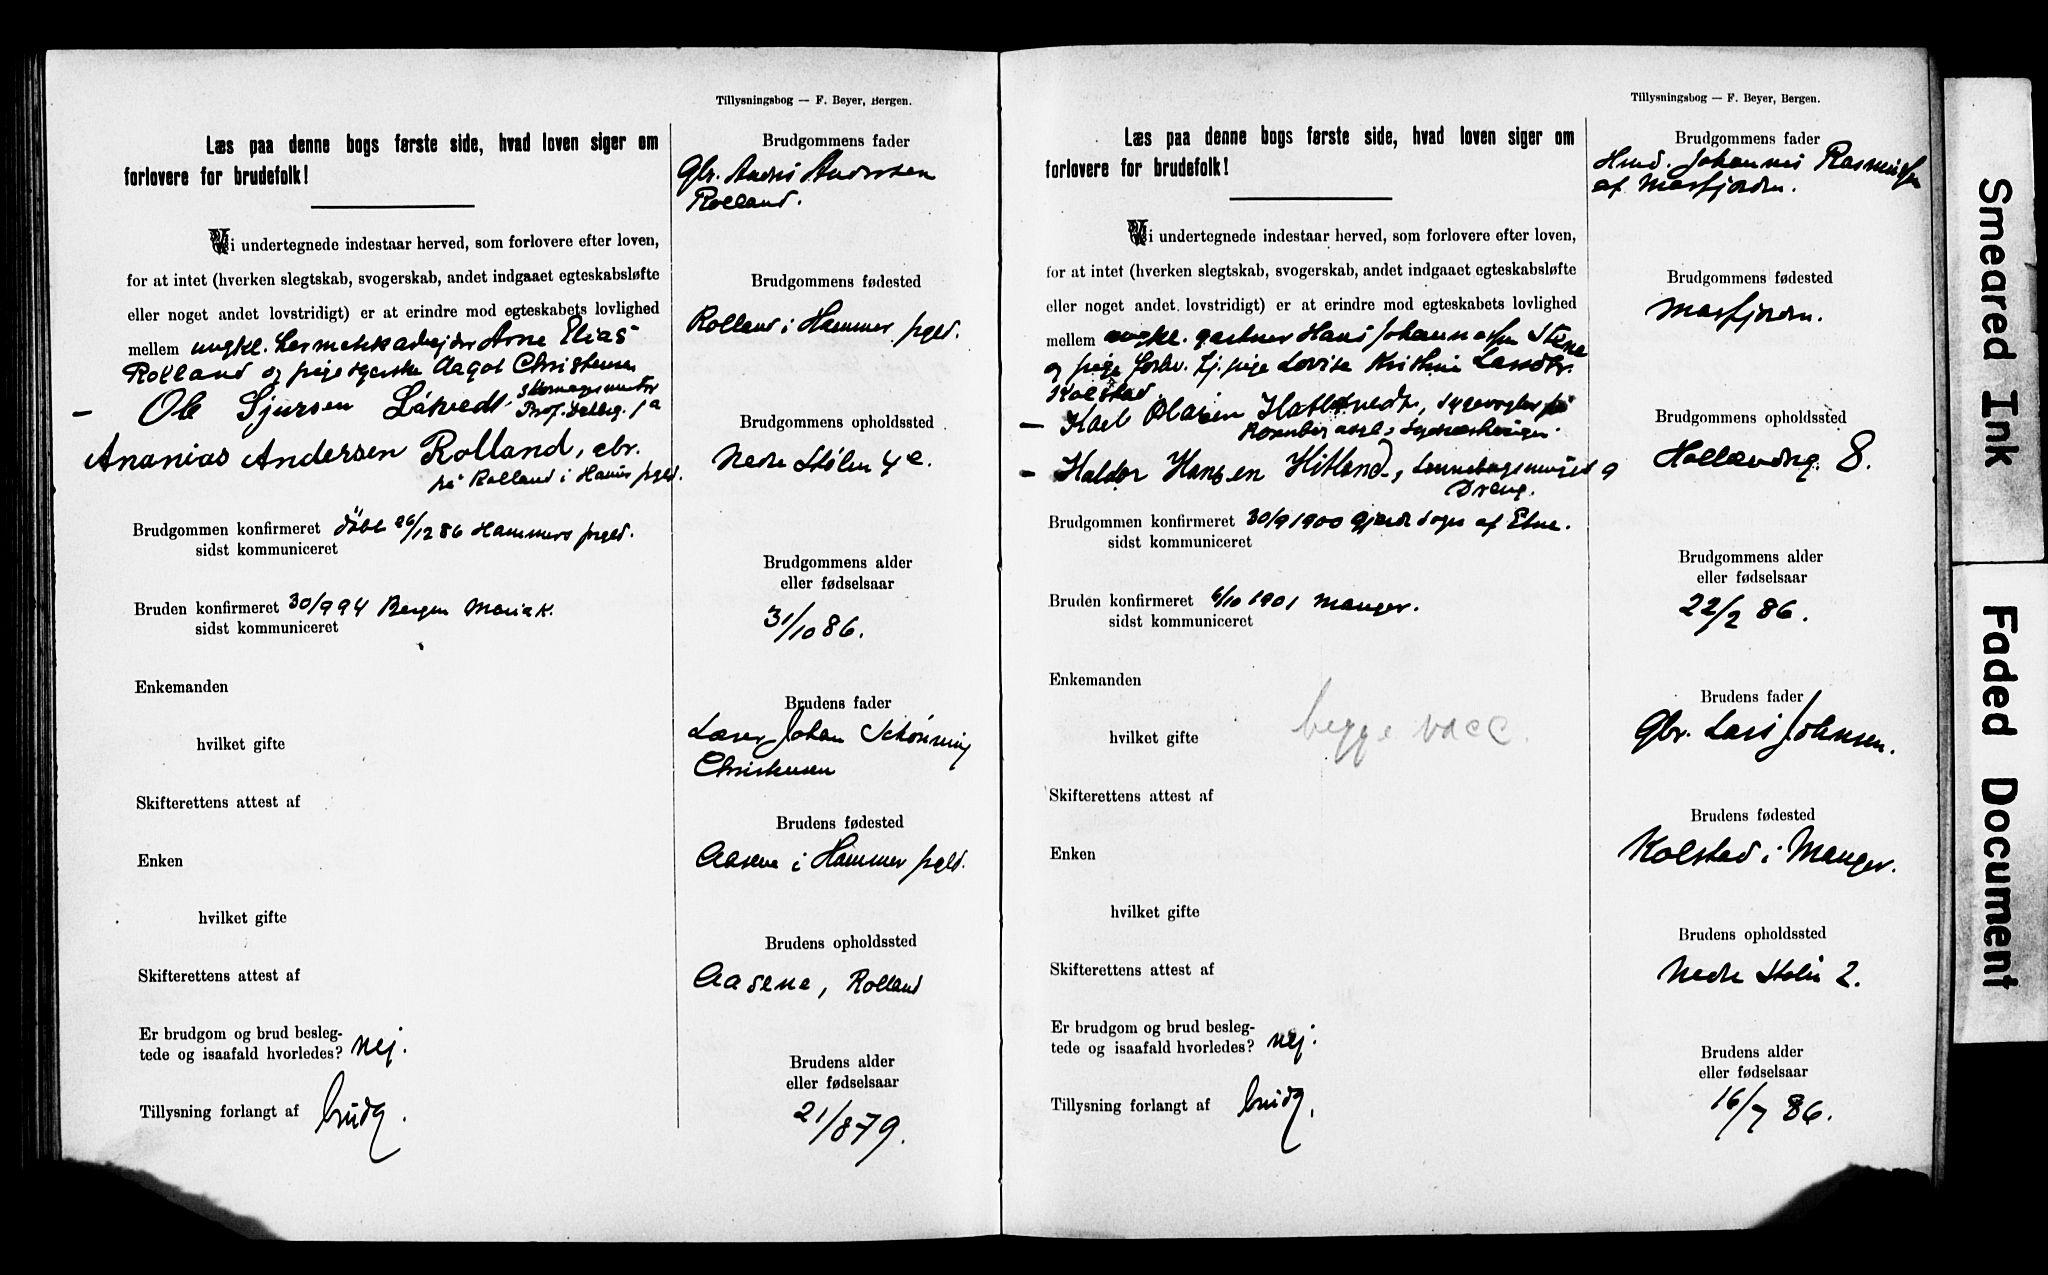 Tillysningsbog — F. Beyer, Bergen.
Læs paa denne bogs første side, hvad loven siger om
forlovere for brudefolk!
Vi undertegnede indestaar herved, som forlovere efter loven,
for at intet (hverken slegtskab, svogerskab, andet indgaaet egteskabsløfte
eller noget andet lovstridigt) er at erindre mod egteskabets lovlighed
mellem ungkl. hermetikkarbejder Arne Elias
Rolland og pige syerske Aagot Christensen
— Ole Sjursen Låkvedt
Ananias Andersen Rolland, gbr.
på Rolland i Hamres pgld.
Brudgommen konfirmeret døbt 26/12 86 Hammers pgld.
sidst kommuniceret
Bruden konfirmeret 30/9 94 Bergen Mariak.
sidst kommuniceret
Enkemanden
hvilket gifte
Skifterettens attest af
Enken
hvilket gifte
Skifterettens attest af
Er brudgom og brud besleg-
tede og isaafald hvorledes? nej.
Tillysning forlangt af brudg.
Brudgommens fader
Gbr. Anders Andersen
Rolland.
Brudgommens fødested
Rolland i Hammer pgld.
Brudgommens opholdssted
Nedre Stølen 4 e.
Brudgommens alder
eller fødselsaar
31/10 86.
Brudens fader
Lærer Johan Schönning
Christensen
Brudens fødested
Aasene i Hammer pgld.
Brudens opholdssted
Aasene, Rolland
Brudens alder
eller fødselsaar
21/8 79.
Tillysningsbog — F. Beyer, Bergen.
Læs paa denne bogs første side, hvad loven siger om
forlovere for brudefolk!
Vi undertegnede indestaar herved, som forlovere efter loven,
for at intet (hverken slegtskab, svogerskab, andet indgaaet egteskabsløfte
eller noget andet lovstridigt) er at erindre mod egteskabets lovlighed
mellem ungkl. gartner Hans Johannessen Stene
og pige forhv. tj. pige Lovise Kristine Landbr.
Kolstad
— Karl Olasen Hatletvedt, sygevogter på
— Haldor Hansen Hitland, Lønneborgsmuget 9
Dreng.
Brudgommen konfirmeret 30/9 1900 Gjerde sogn af Etne.
sidst kommuniceret
Bruden konfirmeret 6/10 1901 Manger.
sidst kommuniceret
Enkemanden
hvilket gifte
begge vacc.
Skifterettens attest af
Enken
hvilket gifte
Skifterettens attest af
Er brudgom og brud besleg-
tede og isaafald hvorledes? nej.
Tillysning forlangt af brudg.
Brudgommens fader
Hmd. Johannes Rasmussen
af Masfjorden.
Brudgommens fødested
Masfjorden.
Brudgommens opholdssted
Hollændrg. 8.
Brudgommens alder
eller fødselsaar
22/2 86.
Brudens fader
Gbr. Lars Johansen.
Brudens fødested
Kolstad i Manger.
Brudens opholdssted
Nedre Stølen 2.
Brudens alder
eller fødselsaar
16/7 86.
Smeared Ink
Faded Document